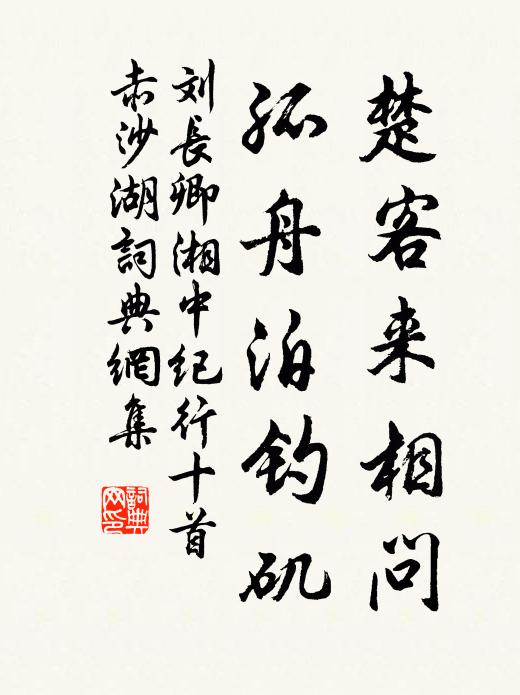 楚客来相问
孤舟泊钓矶
刘長卿湘中纪行十首
赤沙湖詞典網集
詞典
网印